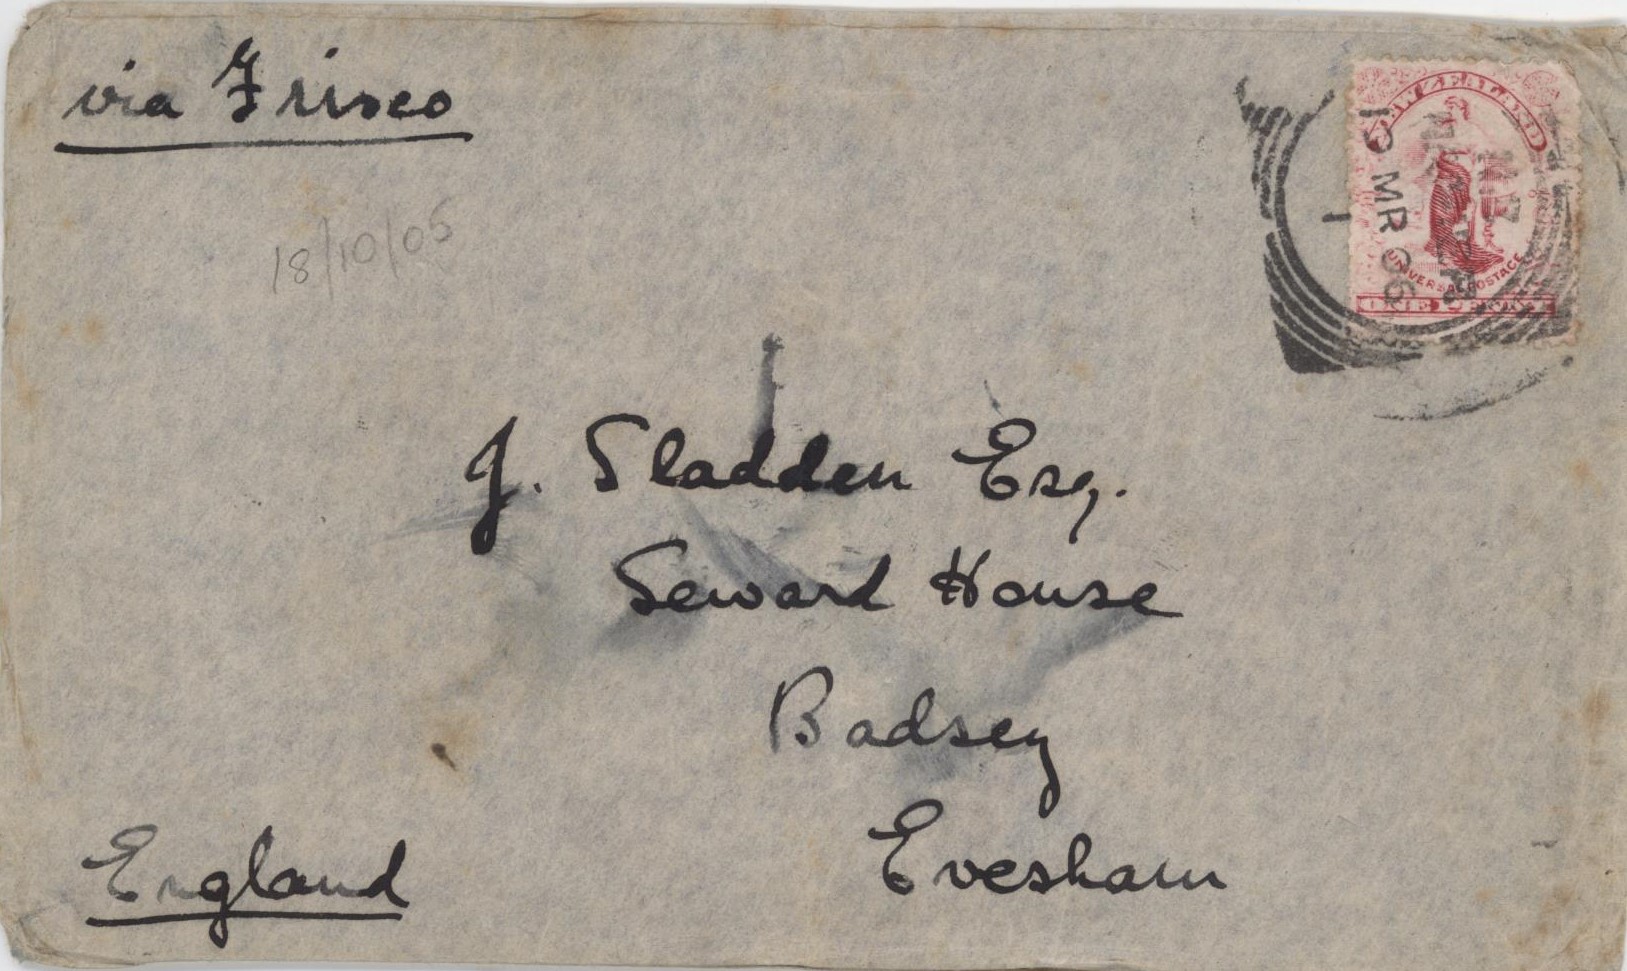 via Frisco
NEW ZEALAND
10 MR 06
UNIVERSAL POSTAGE
ONE PENNY
18/10/05
J. Sladden Esq.
Seward House
Badsey
Evesham
England